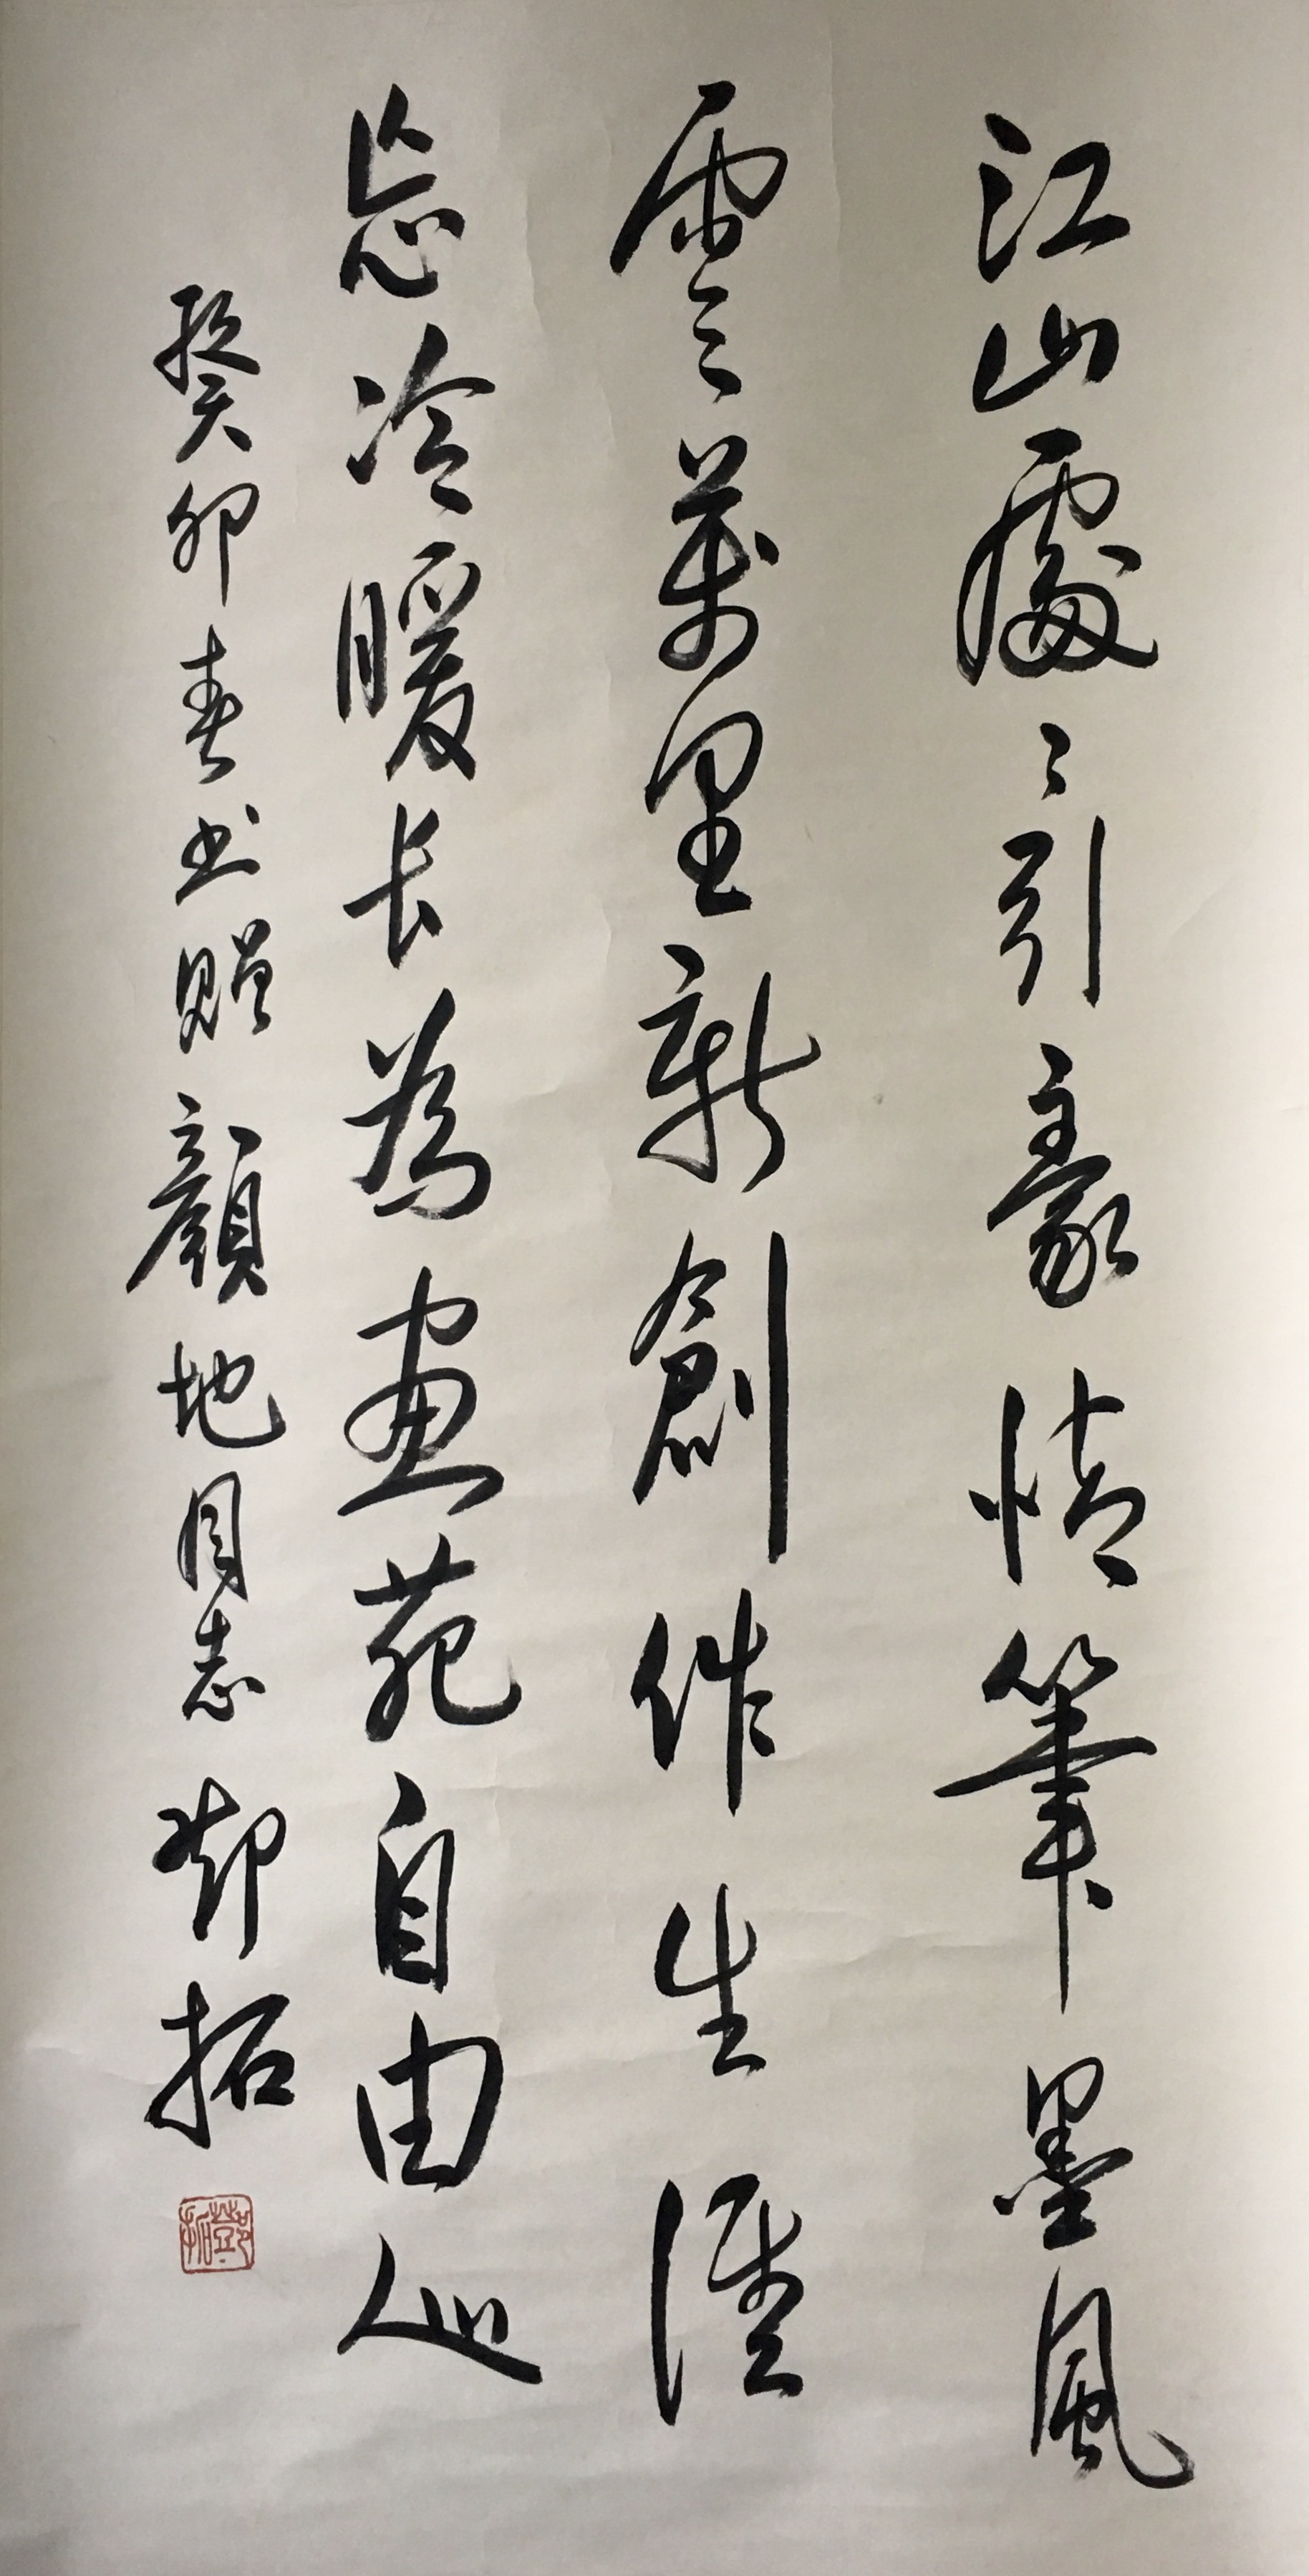 江山處々引豪情筆墨風
雲萬里新創作生涯
忘冷暖長為畫苑自由人
癸卯春書贈顏地同志鄧拓
鄧拓